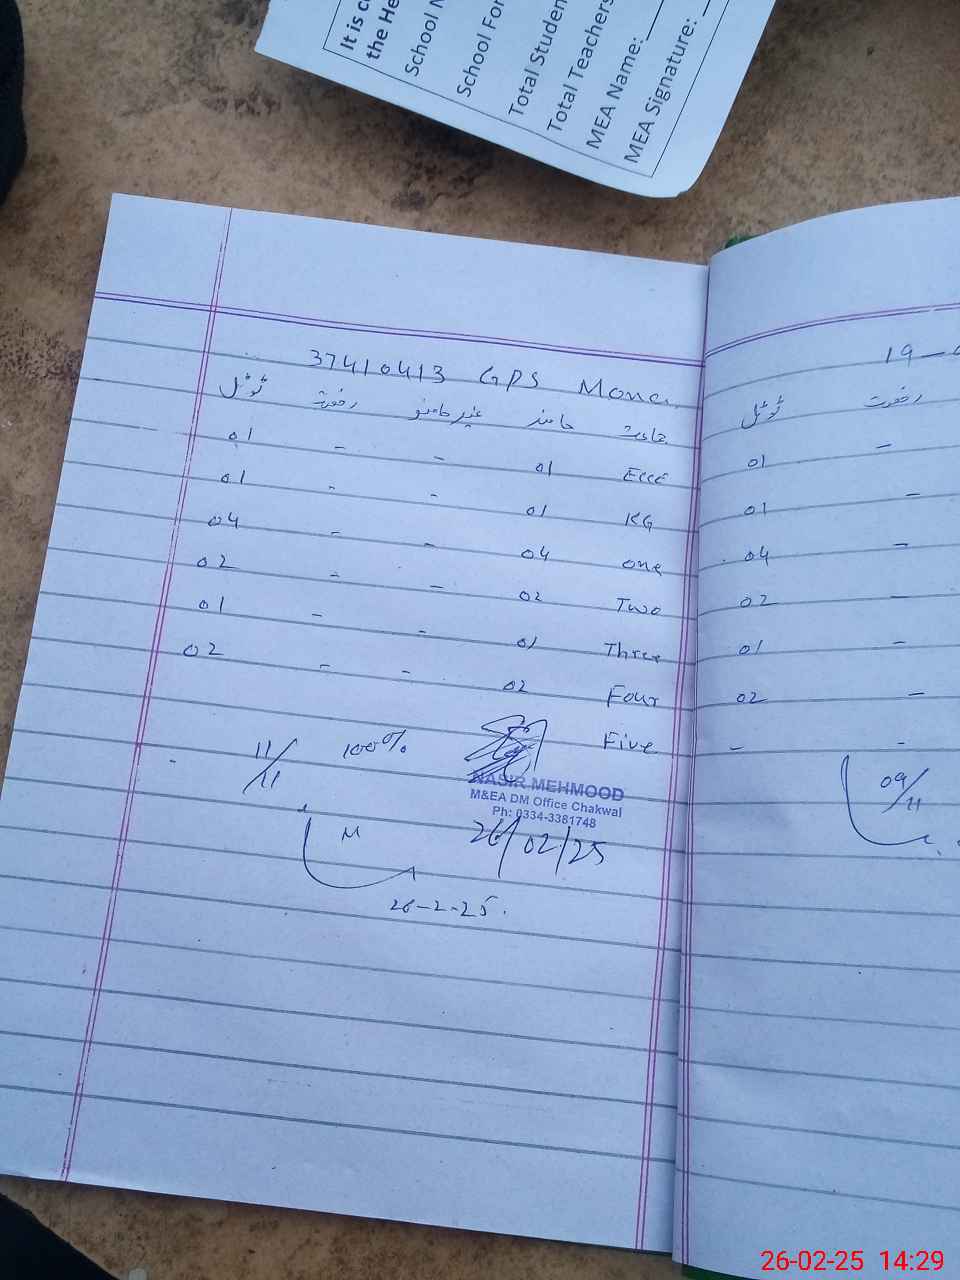 It is c
the He
School N
School For
Total Studen
Total Teachers
MEA Name:
MEA Signature:
37410413 GPS Mona
جماعت حاضر غیر حاضر رخصت ٹوٹل
Ecce 01 - - 01
KG 01 - - 01
one 04 - - 04
Two 02 - - 02
Three 01 - - 01
Four 02 - - 02
Five -
11/11 100%
NASIR MEHMOOD
M&EA DM Office Chakwal
Ph: 0334-3381748
26/02/25
M
26-2-25.
19-
رخصت ٹوٹل
- 01
- 01
- 04
- 02
- 01
- 02
- -
09/11
26-02-25 14:29